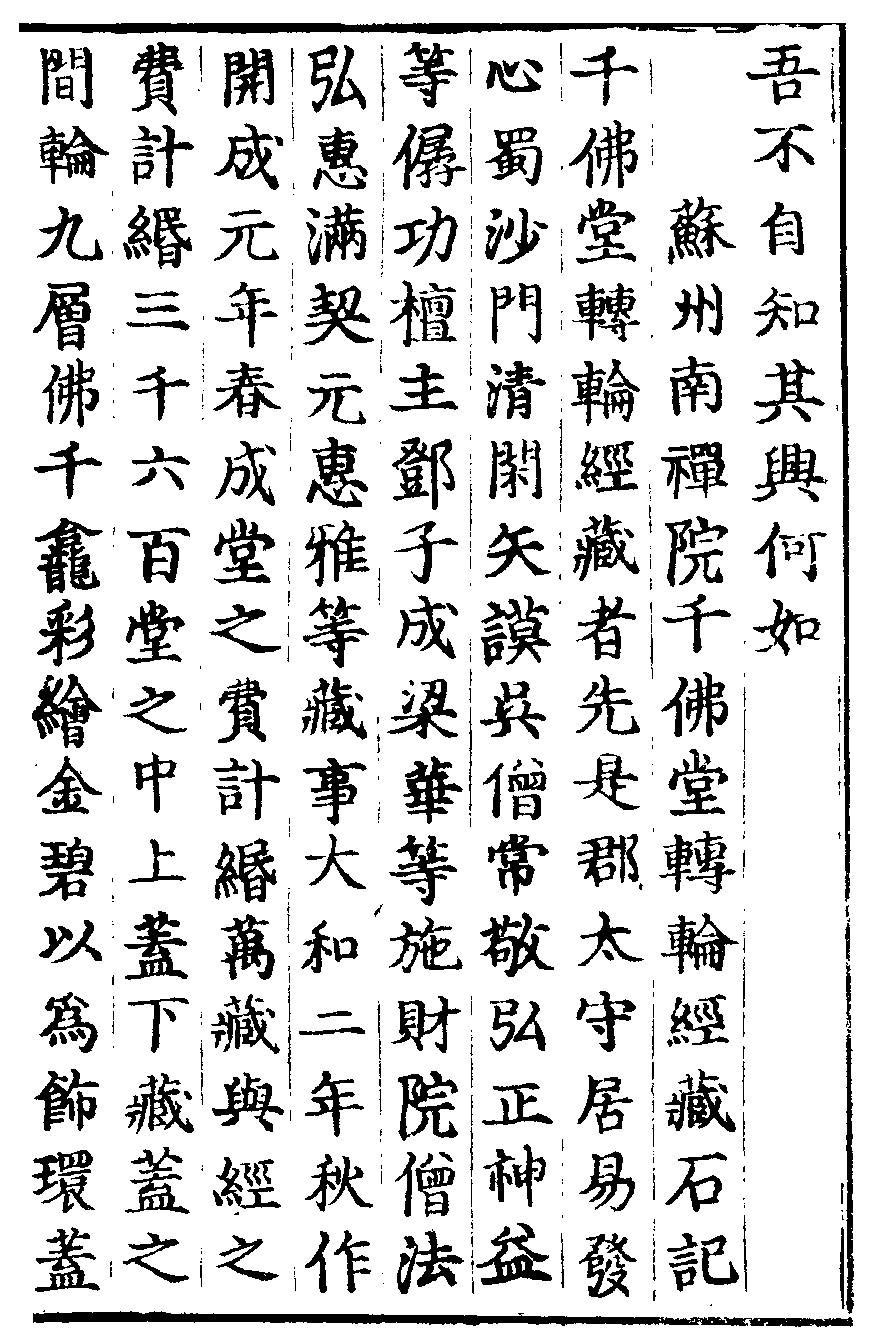 吾不自知其興何如
蘇州南禪院千佛堂轉輪經藏石記
千佛堂轉輪經藏者先是郡太守居易發
心蜀沙門清閑矢謨吳僧常敬弘正神益
等僝功檀主鄧子成梁華等施財院僧法
弘惠滿契元惠雅等藏事大和二年秋作
開成元年春成堂之費計緡萬藏與經之
費計緡三千六百堂之中上蓋下藏蓋之
間輪九層佛千龕彩繪金碧以為飾環蓋